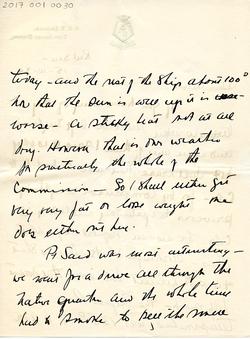 2017 001 0030
today - and the rest of the Ship about 100°
now that the Sun is well up it is
worse - a sticky heat not at all
dry. However that is our weather
for practically the whole of the
Commission - So I shall either get
very very fat or lose weight one
does either out here.
P. Said was most interesting -
we went for a drive all through the
native quarter and the whole time
had to smoke to keep the smell